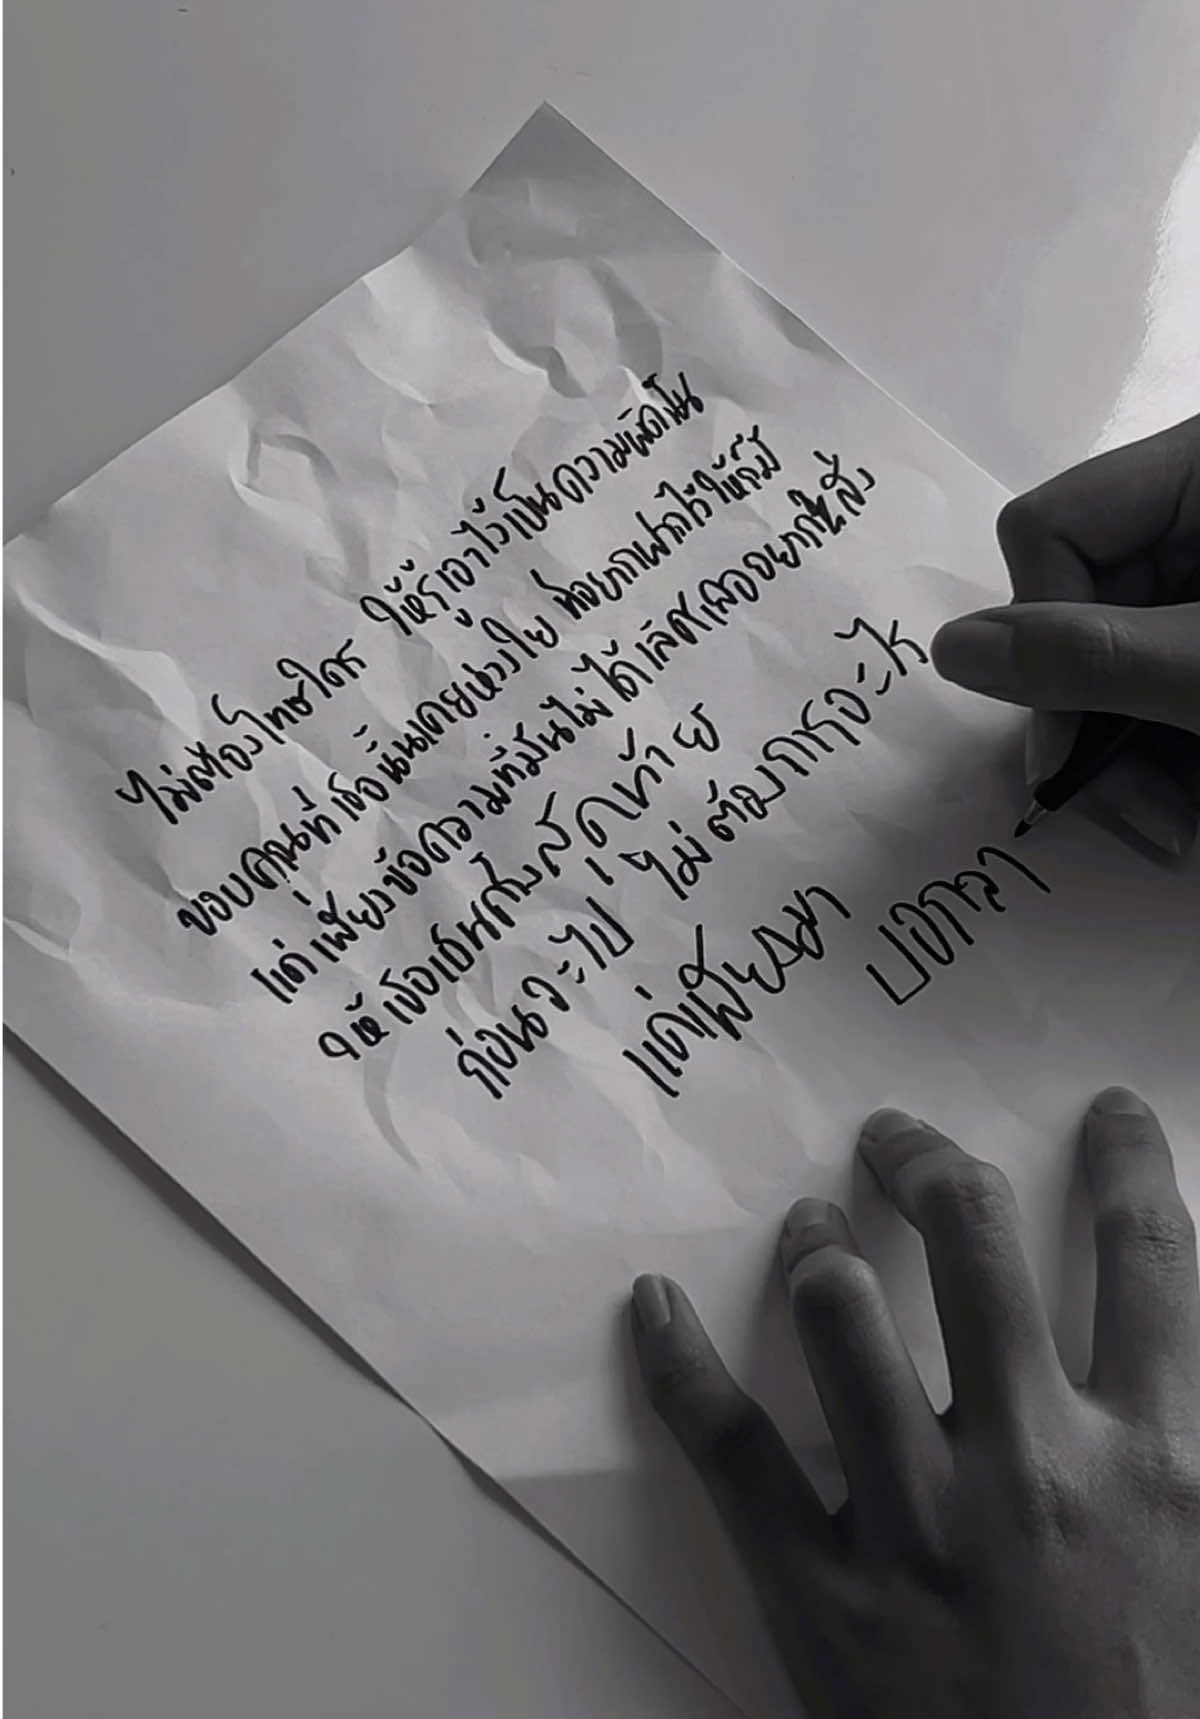 ไม่ต้องโทษใคร ให้รู้เอาไว้เป็นความผิดฉัน
ขอบคุณที่เธอนั้นเคยห่วงใย ที่อยากฝากไว้ให้ก็มี
แค่เพียงข้อความที่มันไม่ได้เลิศเลออยากให้สั่ง
ให้เธอเป็นครั้งสุดท้าย
ก่อนจะไป ไม่ต้องการอะไร
แค่เพียงมา บอกลา